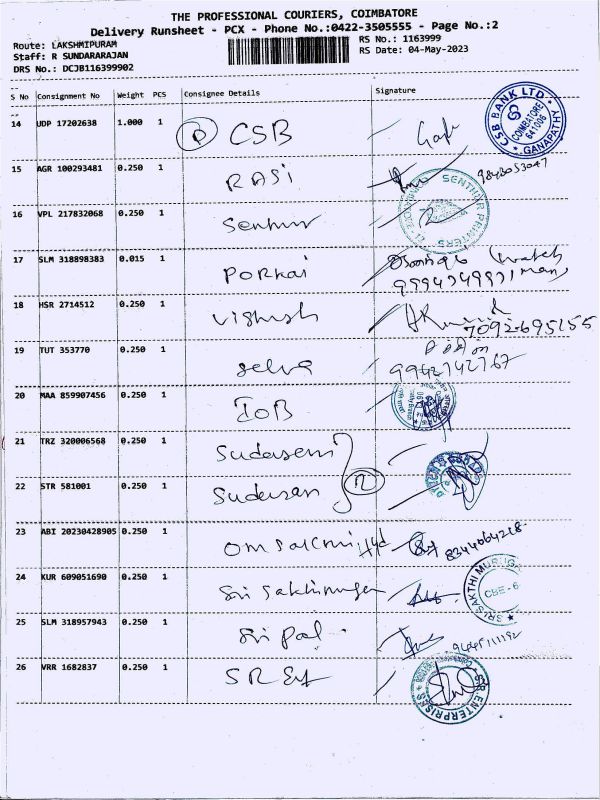 THE PROFESSIONAL COURIERS, COIMBATORE
Delivery Runsheet - PCX - Phone No.:0422-3505555 - Page No.:2
Route: LAKSHMIPURAM RS No.: 1163999
Staff: R SUNDARARAJAN RS Date: 04-May-2023
DRS No.: DCJB116399902
S No Consignment No Weight PCS Consignee Details Signature
14 UDP 17202638 1.000 1 R CSB CSB BANK LTD COIMBATORE 641006 GANAPATHY
15 AGR 100293481 0.250 1 RASI 9843053047
16 VPL 217832068 0.250 1 Senthur SENTHUR PRINTERS
17 SLM 318898383 0.015 1 PORKAI (watch
9994349931 man)
18 HSR 2714512 0.250 1 Vignesh 7092695155
19 TUT 353770 0.250 1 selva 9942742767
20 MAA 859907456 0.250 1 IOB
21 TRZ 320006568 0.250 1
22 STR 581001 0.250 1 Sudarsan R
23 ABI 20230428905 0.250 1 Om Sakthi Hyd 8344664218
24 KUR 609051690 0.250 1 Sri Sakthimurugan SRI SAKTHI MURUGA CBE-6
25 SLM 318957943 0.250 1 Sri Pal
26 VRR 1682837 0.250 1 S R Ent S.R. ENTERPRISES